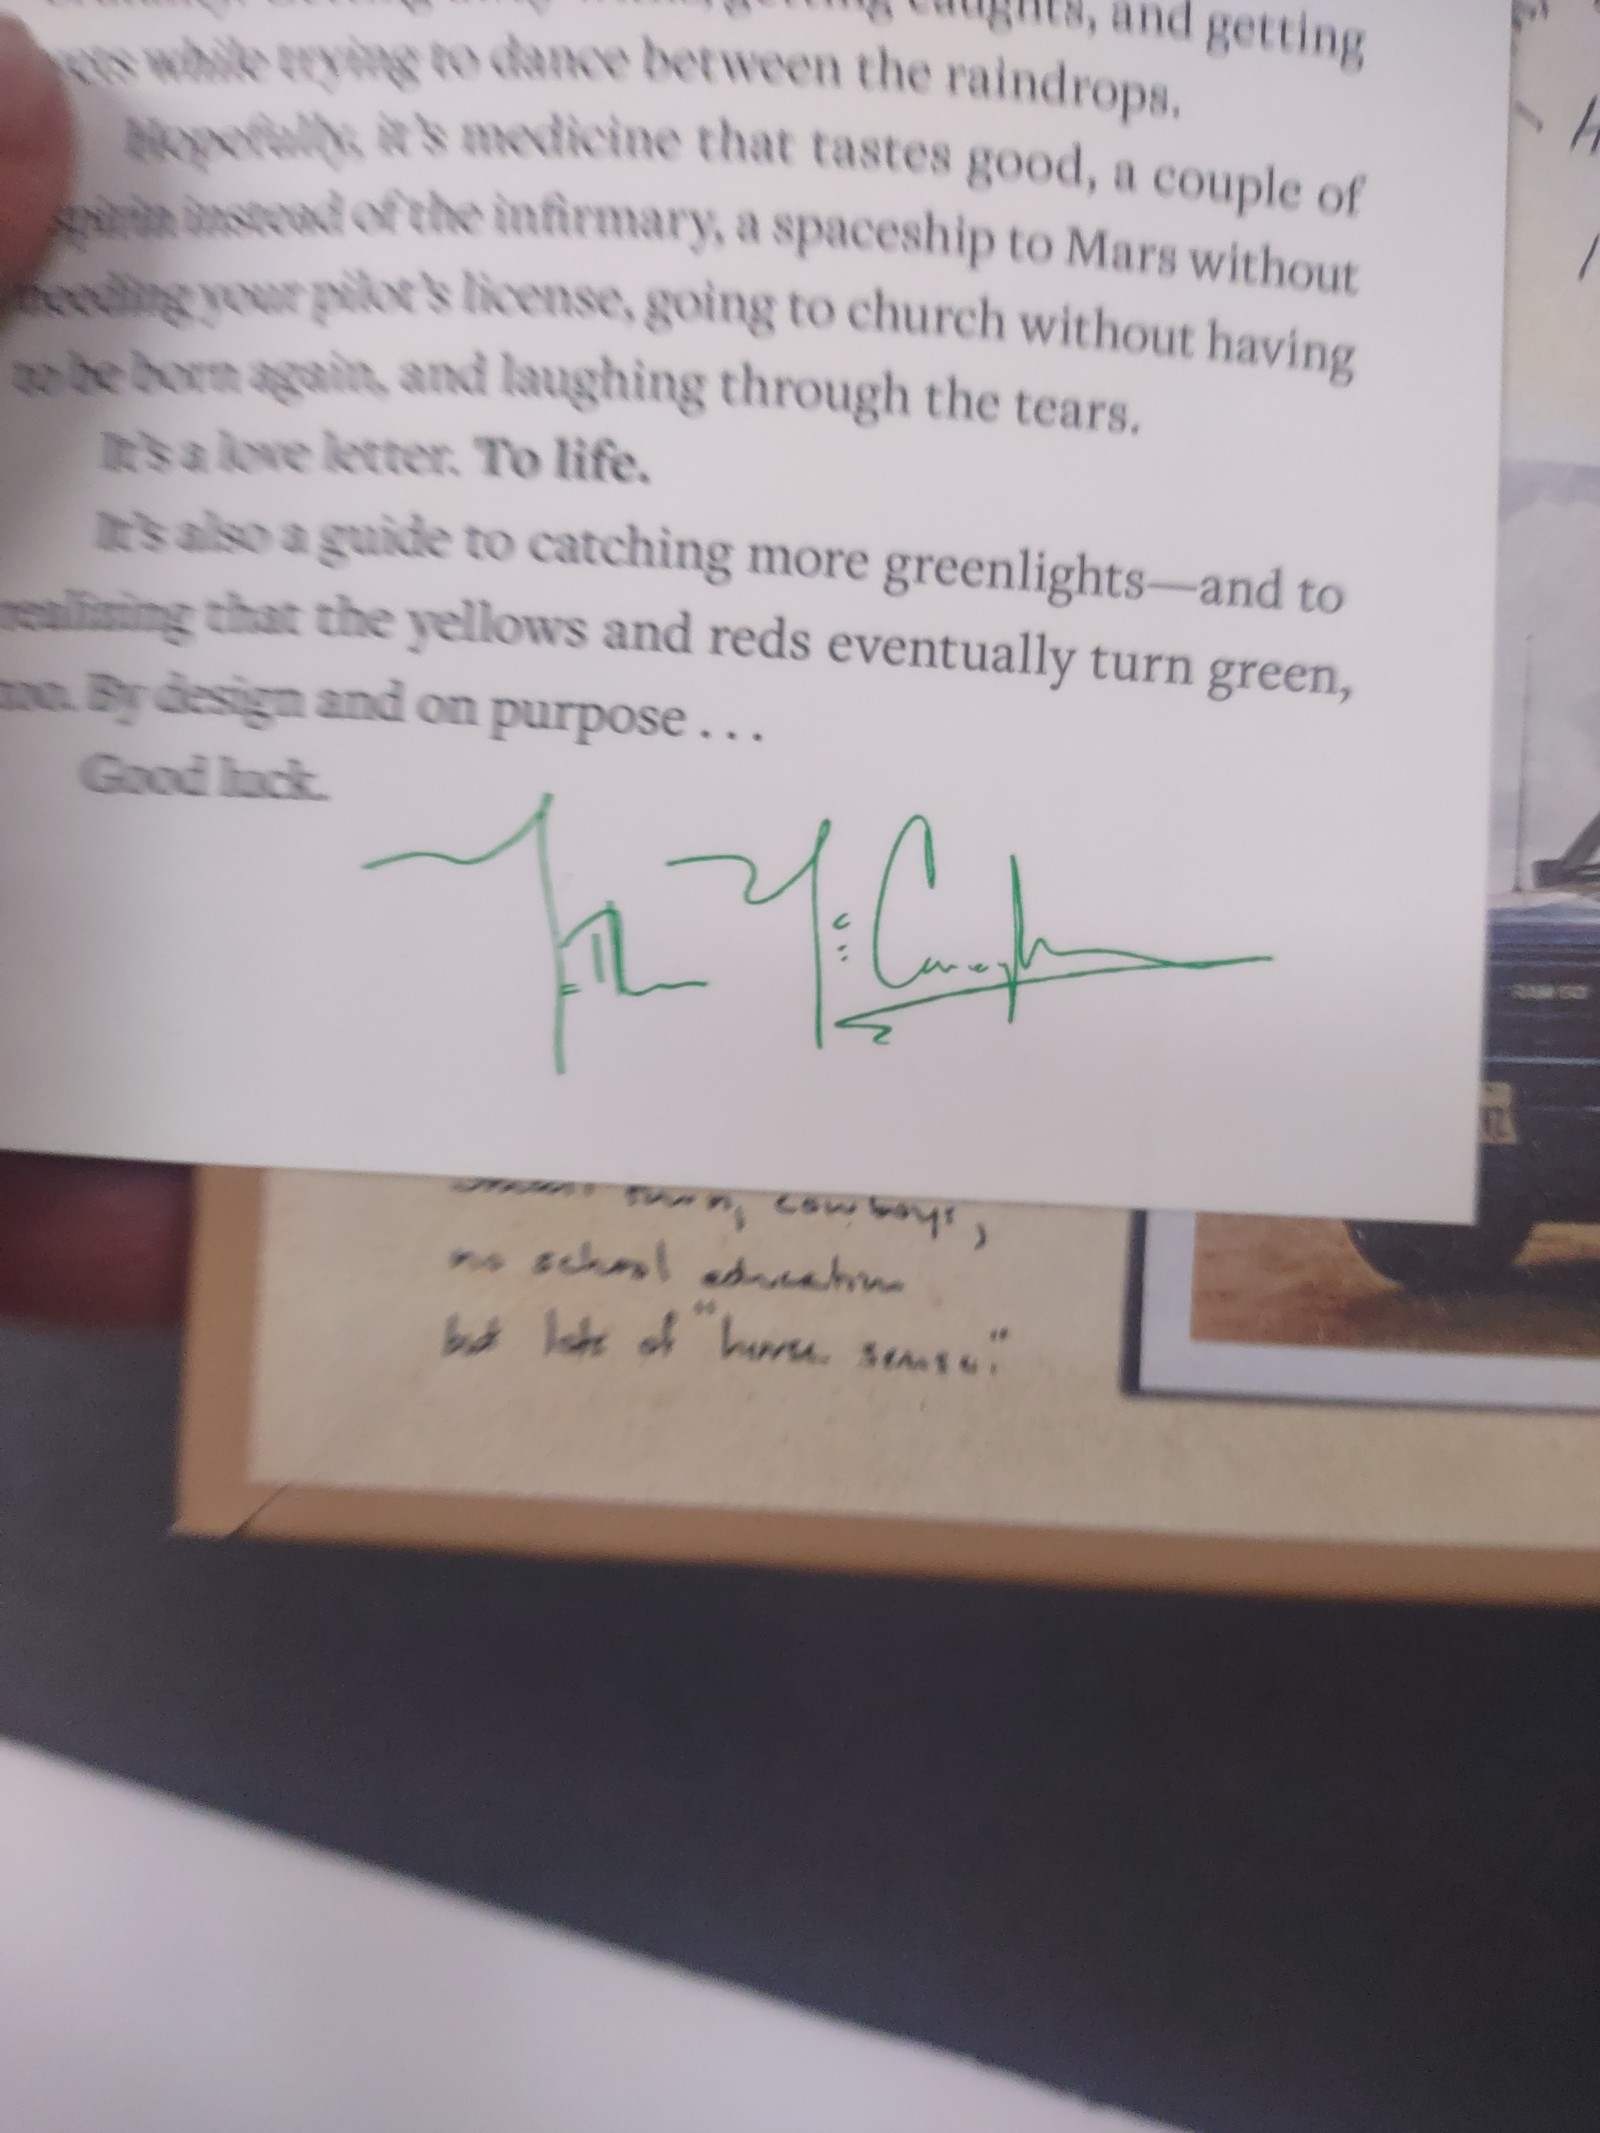 caughts, and getting
while trying to dance between the raindrops.
Hopefully, it's medicine that tastes good, a couple of
instead of the infirmary, a spaceship to Mars without
needing your pilot's license, going to church without having
to be born again, and laughing through the tears.
It's a love letter. To life.
It's also a guide to catching more greenlights—and to
realizing that the yellows and reds eventually turn green,
too. By design and on purpose . . .
Good luck.
cowboys,
no school education
but lots of "horse sense."